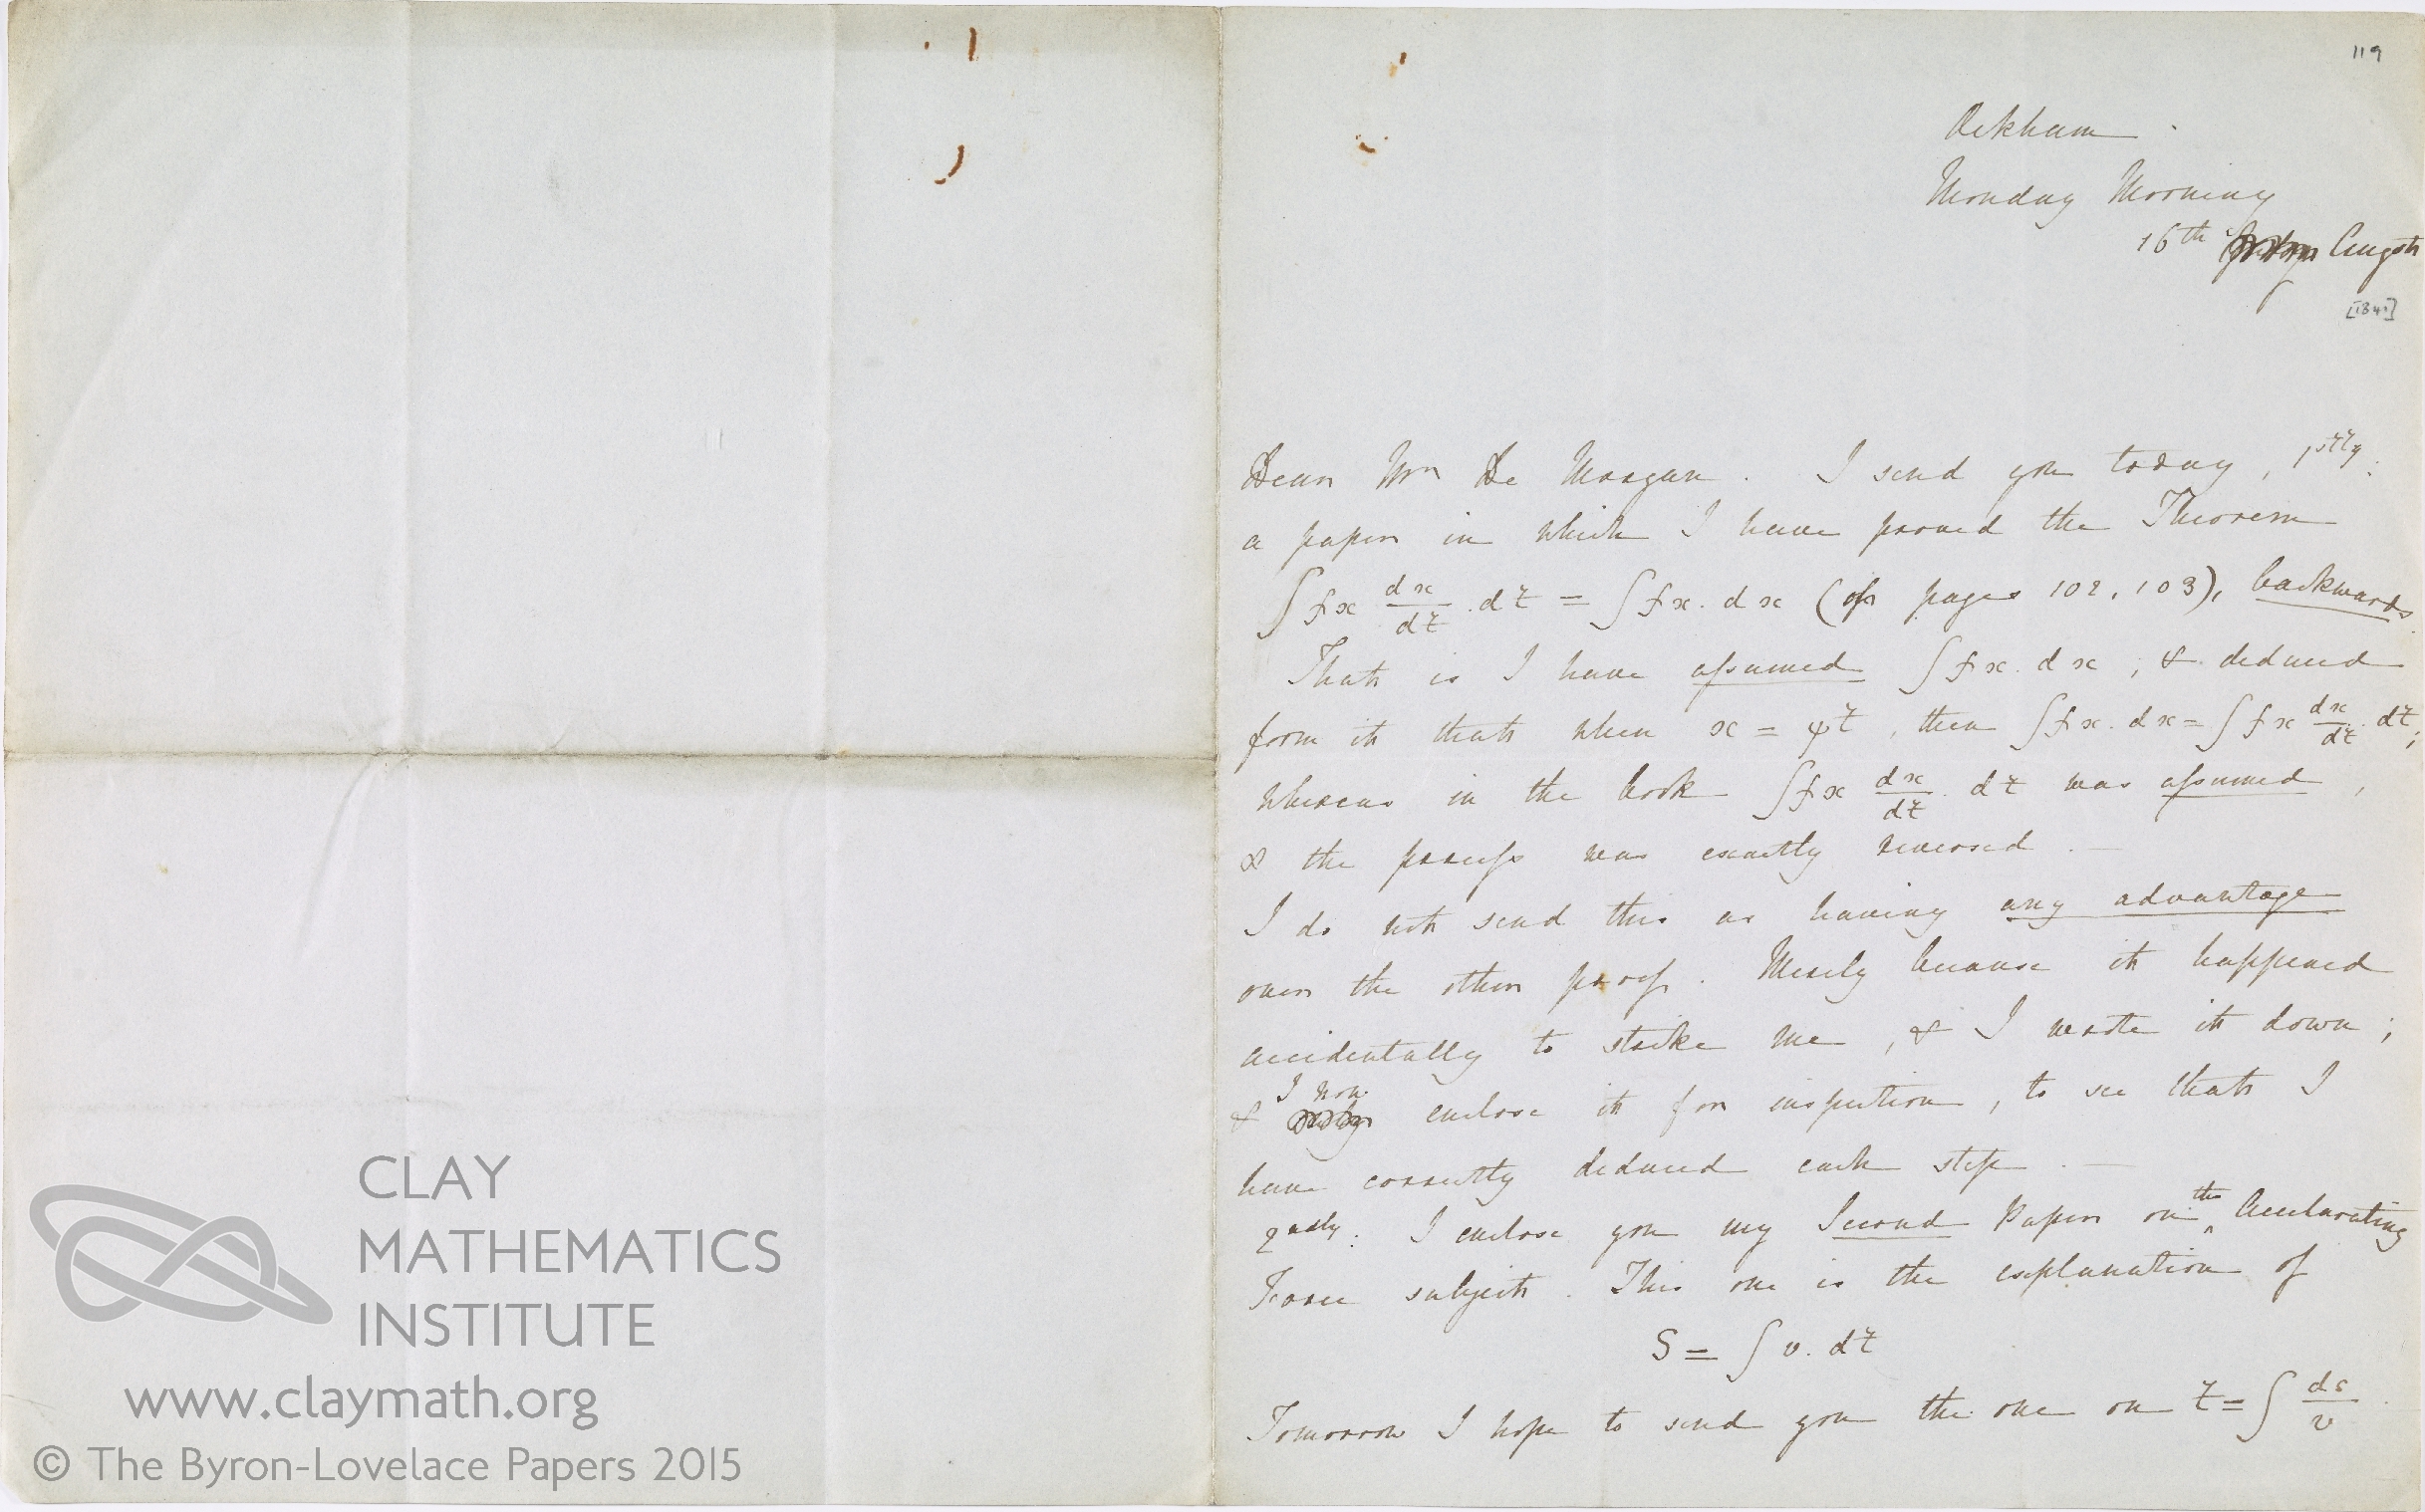 119
Ockham
Monday Morning
16th August
[1841]
Dear Mr De Morgan. I send you today, 1stly:
a paper in which I have proved the Theorem
∫fx dx/dt . dt = ∫fx. dx (of pages 102, 103), backwards.
That is I have assumed ∫fx. dx, & deduced
from it that when x = φt, then ∫fx. dx = ∫fx dx/dt . dt;
whereas in the book ∫fx dx/dt . dt was assumed,
& the process was exactly reversed. —
I do not send this as having any advantage
over the other proof. Merely because it happened
accidentally to strike me, & I wrote it down;
& I now enclose it for inspection, to see that I
have correctly deduced each step. —
2ndly: I enclose you my Second Paper on the Accelerating
Force subject. This one is the explanation of
S = ∫ v. dt
Tomorrow I hope to send you the one on t = ∫ ds/v
CLAY
MATHEMATICS
INSTITUTE
www.claymath.org
© The Byron-Lovelace Papers 2015